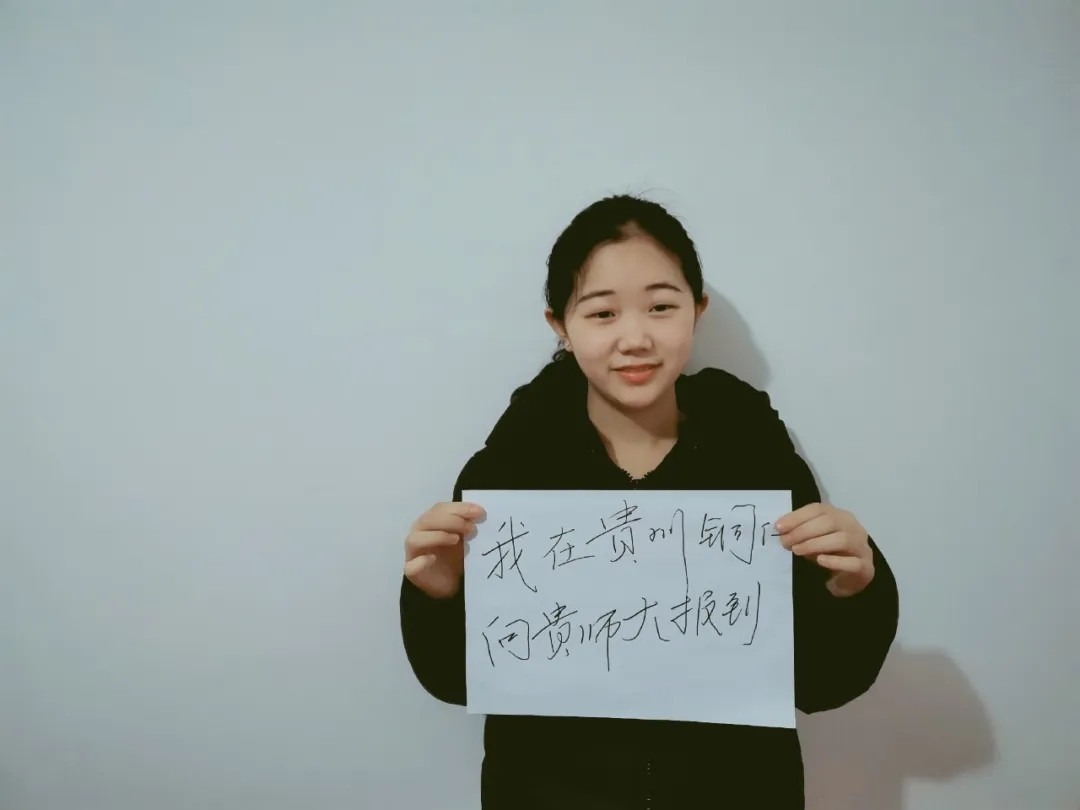 我在贵州铜仁
向贵师大报到